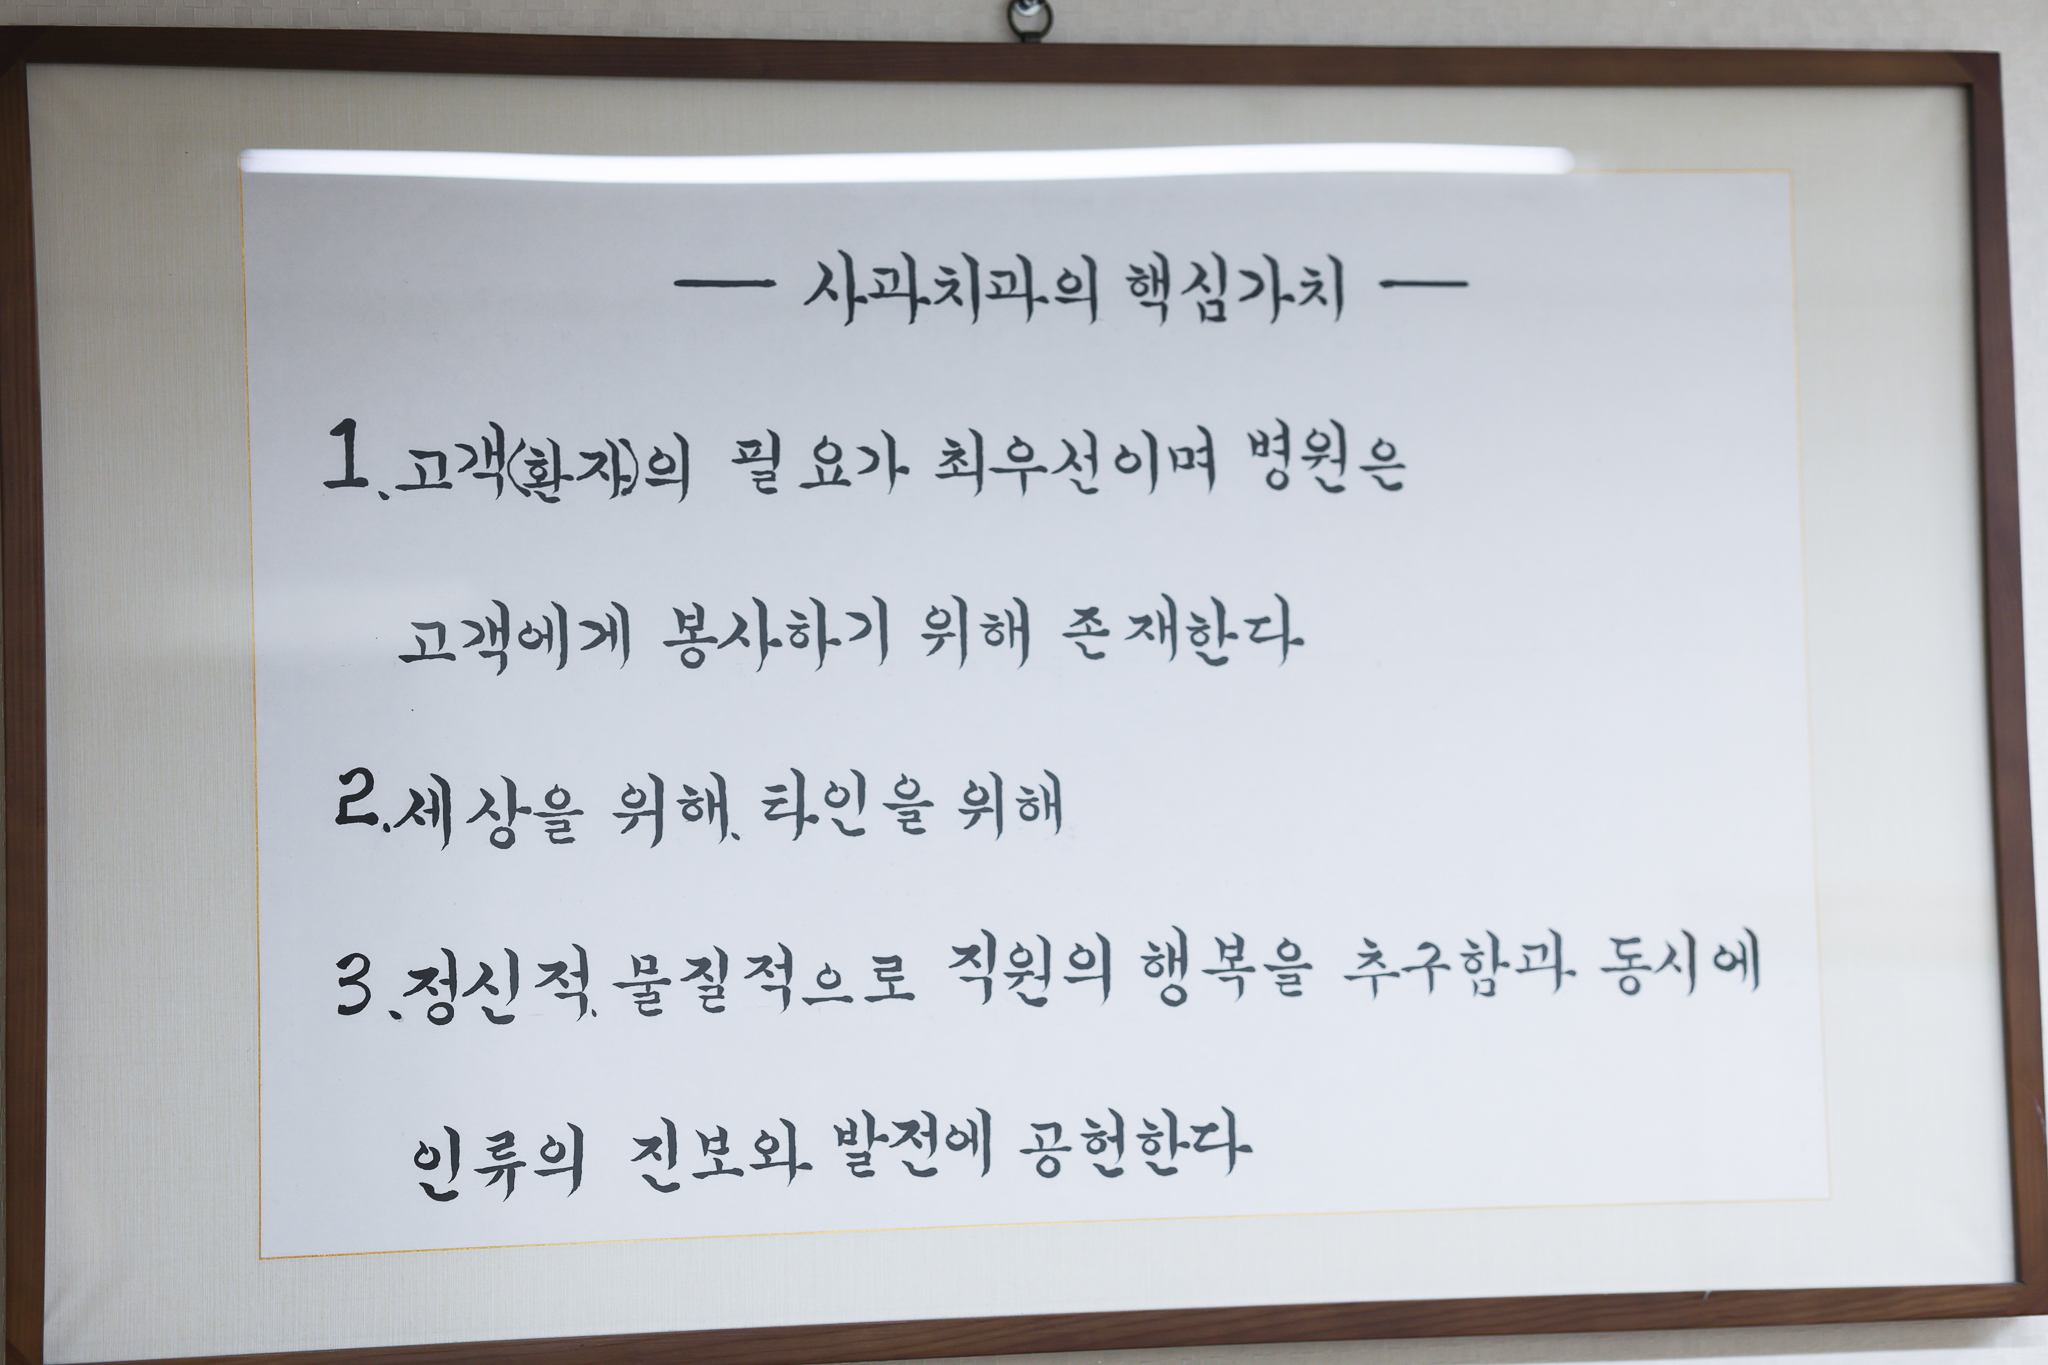 — 사과치과의 핵심가치 —
1. 고객(환자)의 필요가 최우선이며 병원은
고객에게 봉사하기 위해 존재한다
2. 세상을 위해, 타인을 위해
3. 정신적, 물질적으로 직원의 행복을 추구함과 동시에
인류의 진보와 발전에 공헌한다